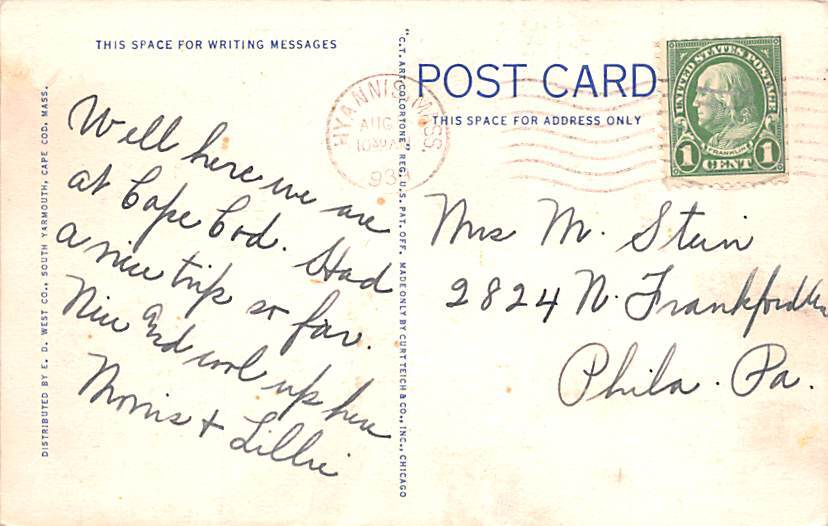 THIS SPACE FOR WRITING MESSAGES
Well here we are
at Cape Cod. Had
a nice trip so far.
Nice and cool up here
Morris + Lillie
DISTRIBUTED BY E. D. WEST CO., SOUTH YARMOUTH, CAPE COD, MASS.
"C.T. ART-COLORTONE" REG. U.S. PAT. OFF. MADE ONLY BY CURT TEICH & CO., INC., CHICAGO
HYANNIS MASS.
AUG
10 AM
193
POST CARD
THIS SPACE FOR ADDRESS ONLY
UNITED STATES POSTAGE
FRANKLIN
1 CENT 1
Mrs M. Stein
2824 N.
Phila. Pa.